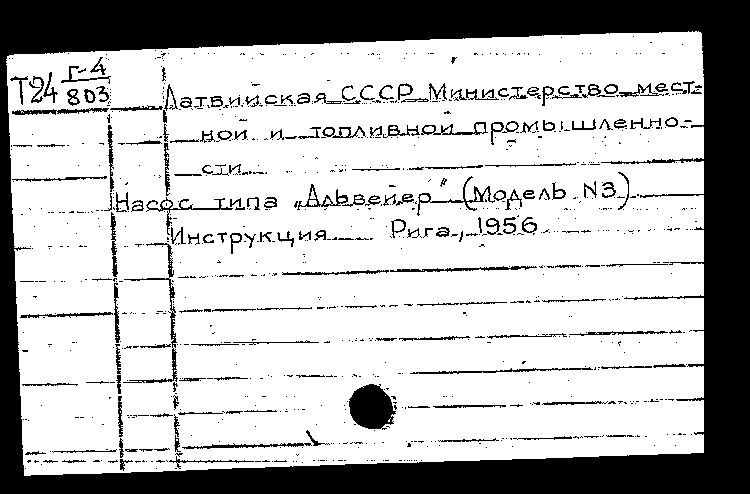 Т24 Г-4
803
Латвийская СССР Министерство мест-
ной и топливной промышленно-
сти
Насос типа „Альвейер" (Модель N3)
Инструкция Рига, 1956